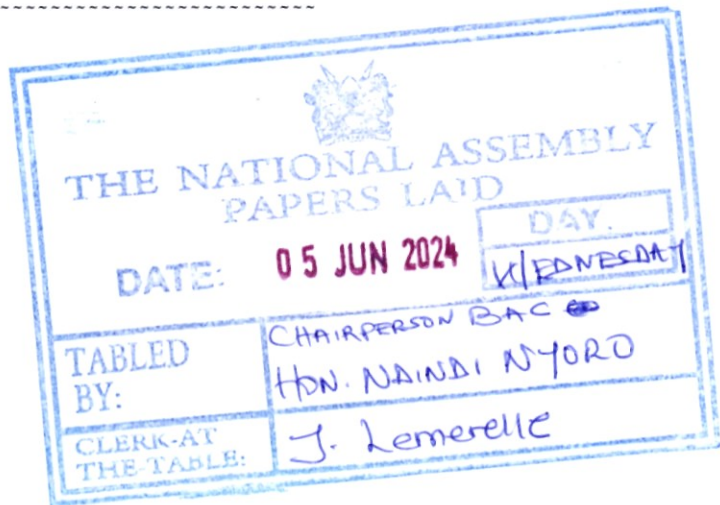 THE NATIONAL ASSEMBLY
PAPERS LAID
DATE: 05 JUN 2024
DAY.
WEDNESDAY
TABLED BY:
CHAIRPERSON BAC
HON. NDINDI NYORO
CLERK-AT THE-TABLE:
J. Lemerelle